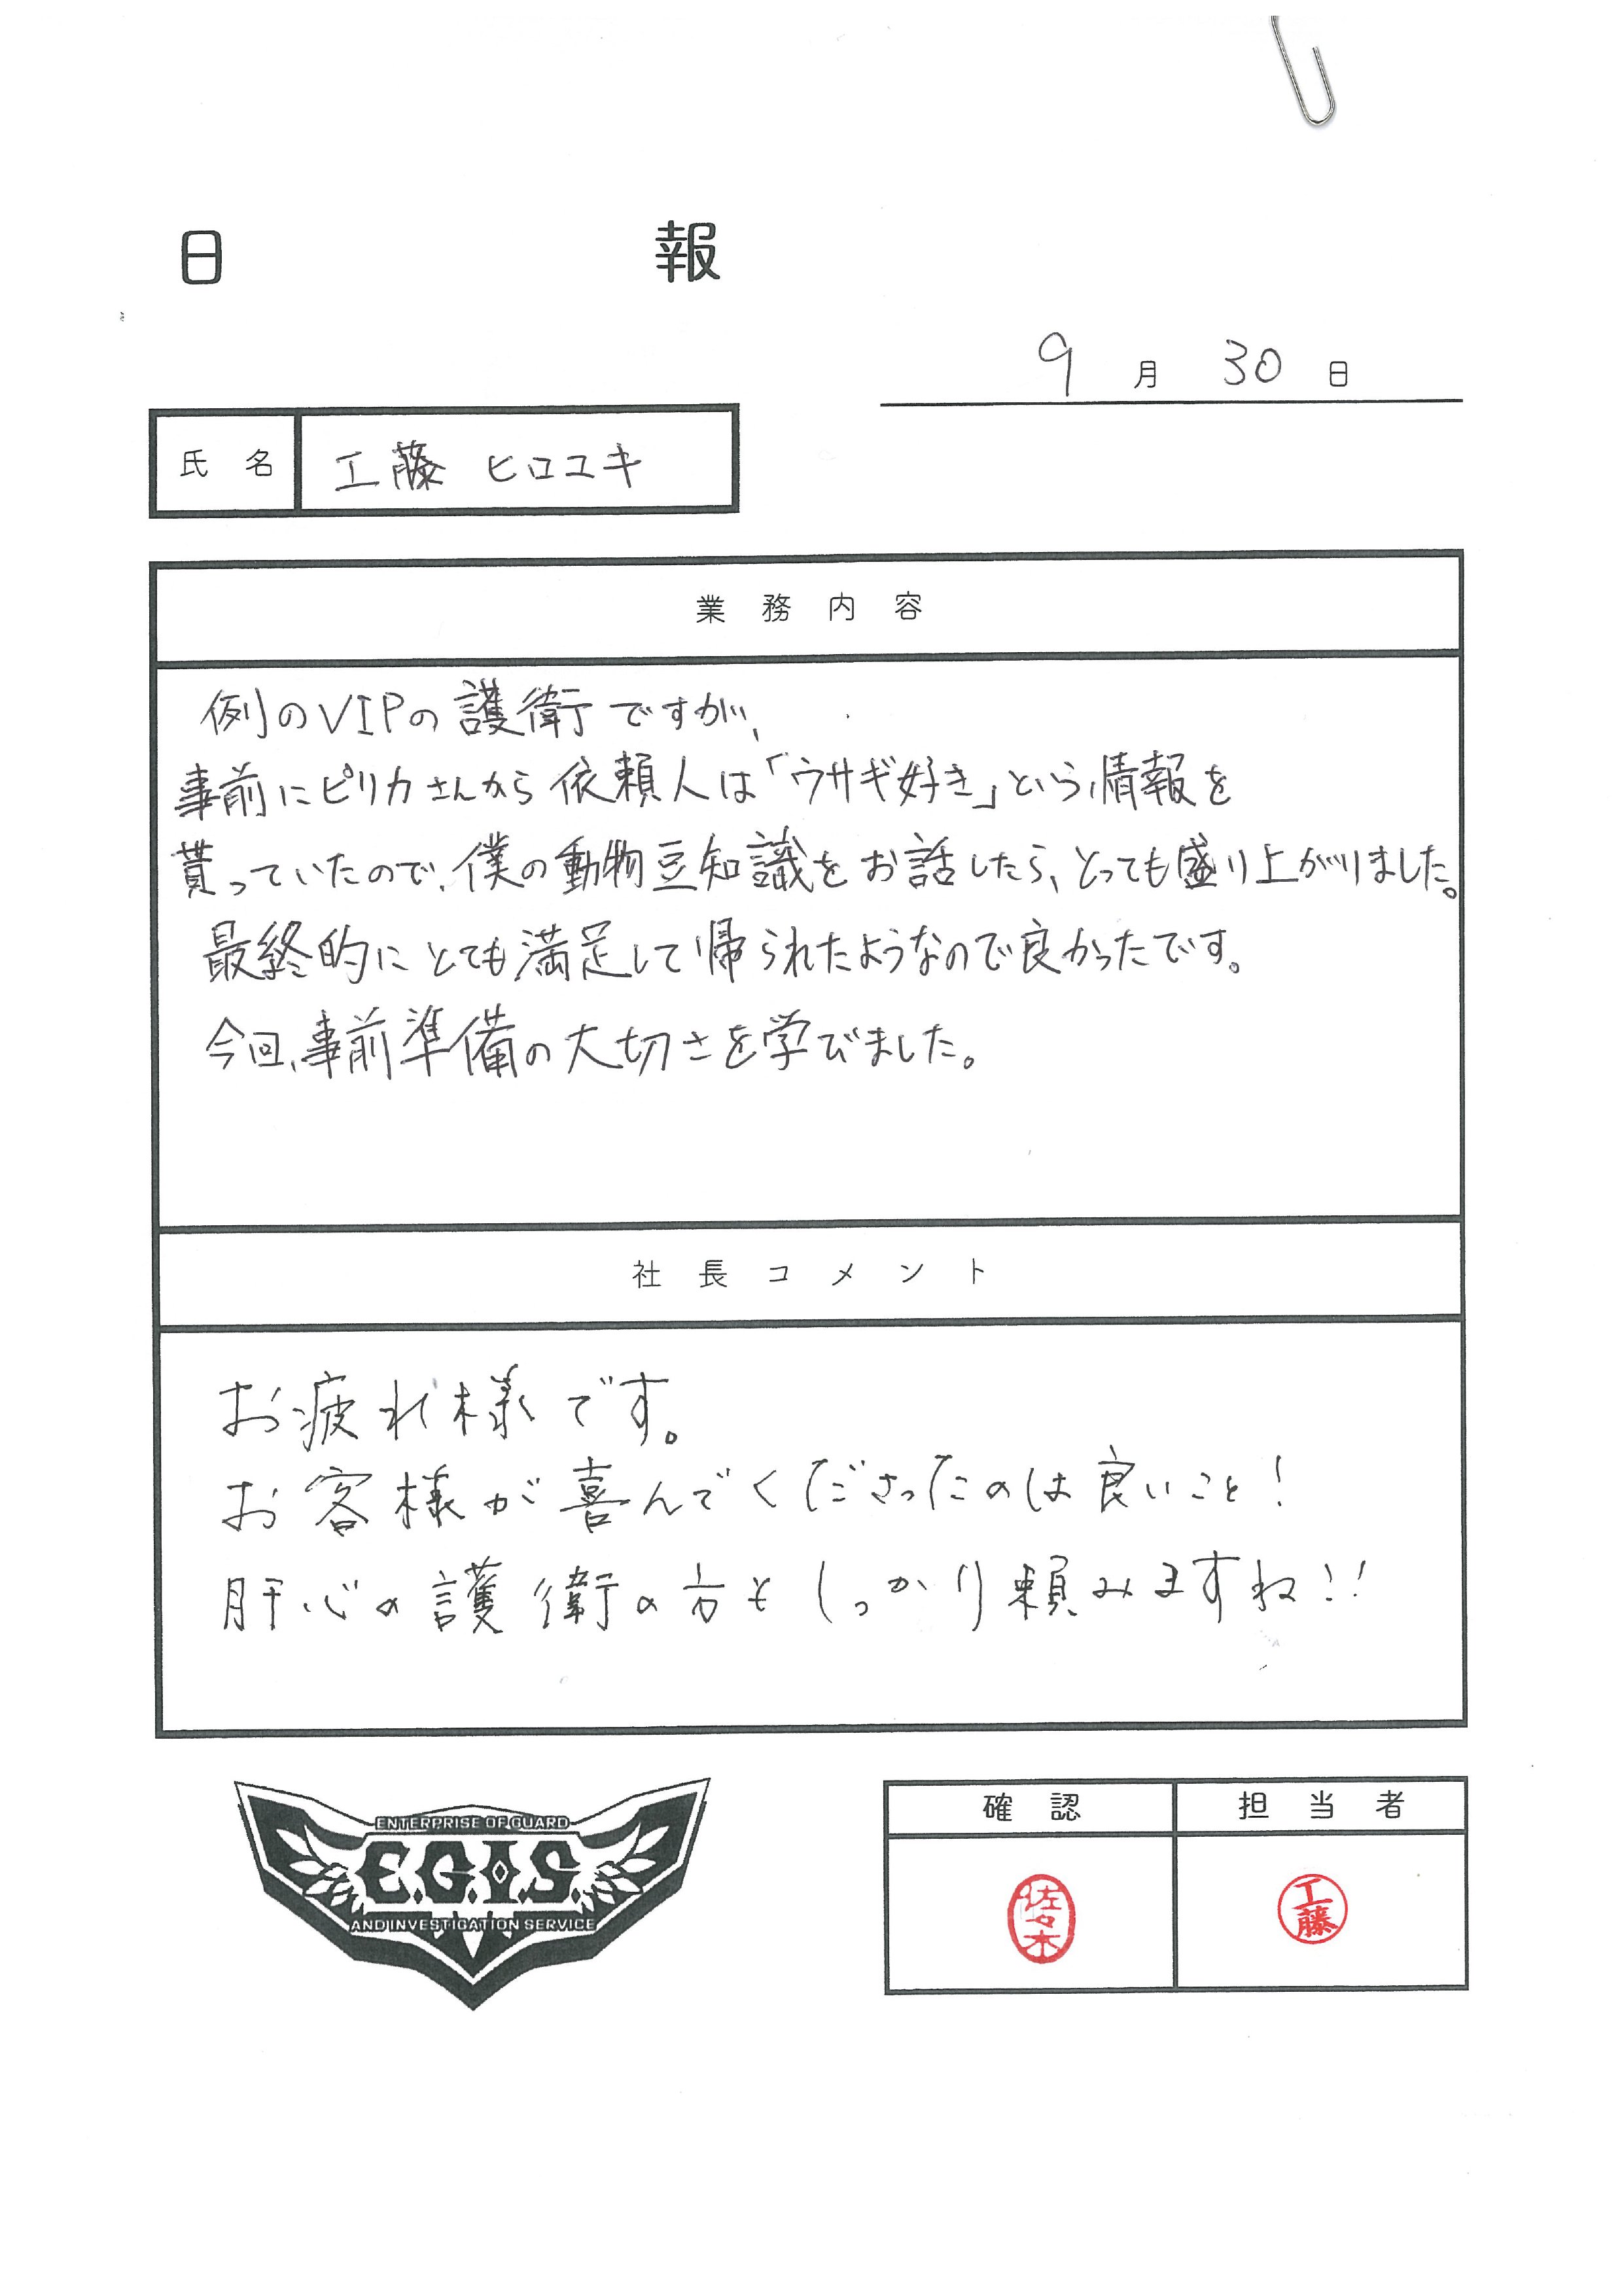 日報
9月30日
氏名 工藤 ヒロユキ
業務内容
例のVIPの護衛ですが、
事前にピリカさんから依頼人は「ウサギ好き」という情報を
貰っていたので、僕の動物豆知識をお話したら、とっても盛り上がりました。
最終的にとても満足して帰られたようなので良かったです。
今回、事前準備の大切さを学びました。
社長コメント
お疲れ様です。
お客様が喜んでくださったのは良いこと!
肝心の護衛の方もしっかり頼みますね!!
ENTERPRISE OF GUARD
E.G.I.S.
AND INVESTIGATION SERVICE
確認 担当者
佐々木 工藤